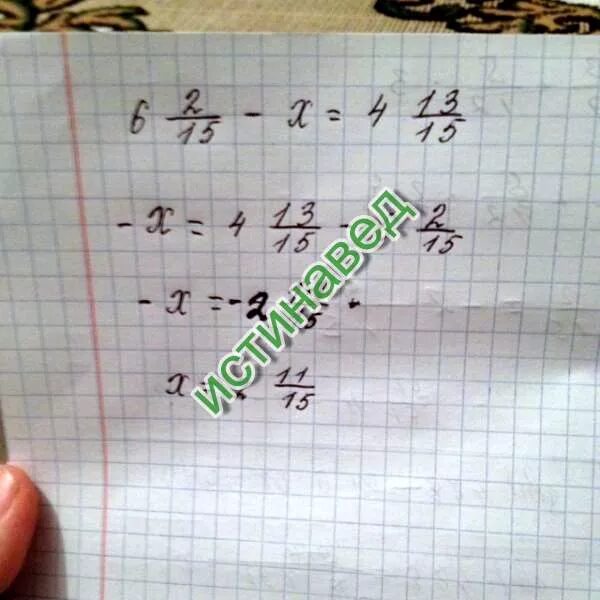 6 2/15 - x = 4 13/15
- x = 4 13/15 - 2/15
- x = -2
x = 11/15
истинавед